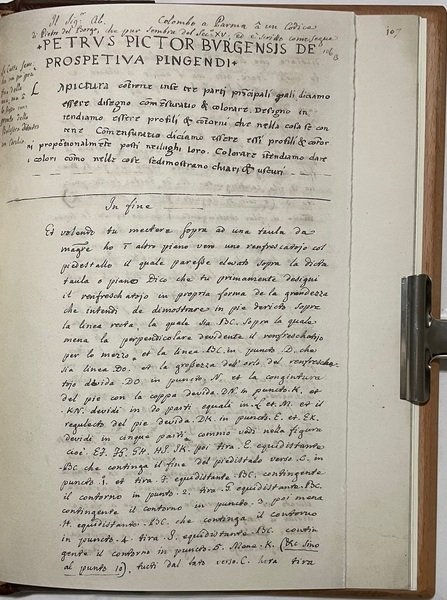 Il Sigr. Ab. Colombo a Parma à un Codice
di Pietro del Borgo, che pur sembra del Sec. XV. ed è scritto come segue
107
+PETRVS PICTOR BVRGENSIS DE
PROSPETIVA PINGENDI+
LA PICTURA contiene inse tre parti principali quali diciamo
essere disegno comensuratio & colorare. Desegno in
tendiamo essere profili & contorni che nella cosa se con
tene. Comensuratio diciamo essere essi profili & contor
ni proportionalmente posti neiluoghi loro. Colorare itendiamo dare
i colori como nelle cose sedimostrano chiari & uscuri
In fine
Et volendo tu mectere sopra ad una taula da
magre ho ĩ altro piano vero uno renfrescatojo col
piedestallo il quale paresse elvato sopra la dicta
taula o piano. Dico che tu primamente designi
il renfreschatojo in propria forma de la grandezza
che intendi de dimostrare in pie dericto sopra
la linea recta, la quale sia .BC. sopra la quale
mena la perpendicolare devidente il renfreschatojo
per lo mezzo, et la linea .BC. in puncto .D. che
sia linea .DO. et la grossezza dell'orlo del renfrescha-
tojo devida .DO. in puncto .N. et la congiuntura
del pie con la coppa devida .DN. in puncto .K. et
.KN. devidi in do parti equali in .L. et .M. et il
regulecto del pie devida .DK. in puncto .E. et .EK.
devidi in cinque parti commo vedi nella figura
cioè .EF. FG. GH. HI. IK. poi tira .E. equidistante
.BC che continga il fine del piedestalo verso .C. in
puncto 1. et tira .F. equidistante .BC. contingente
il contorno in punto .2. tira .G. equidistante .BC.
contingente il contorno in puncto .3. poi mena
.H. equidistante .BC. che continga il contorno
in puncto .4. tira .I. equidistante .BC. contin
gente il contorno in puncto .5. Mena .K. (&c. sino
al punto 10), tucti dal lato verso .C. hora tira